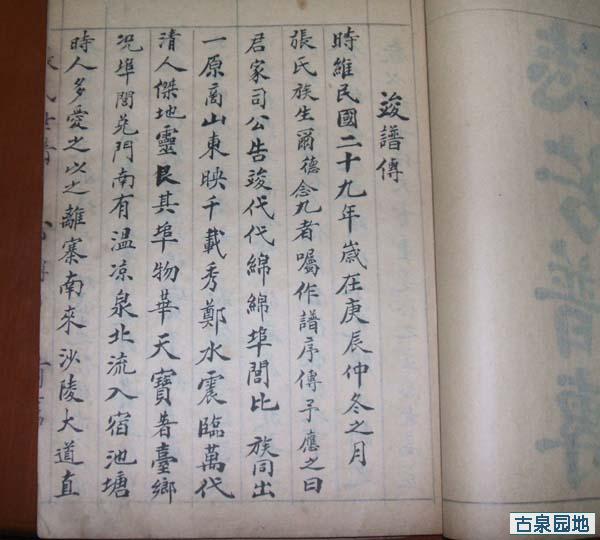 竣譜傳
時維民國二十九年歲在庚辰仲冬之月
張氏族生爾德念九者囑作譜序傳予應之曰
君家司公告竣代代綿綿埠閭比 族同出
一原离山東映千載秀鄭水震臨萬代
清人傑地靈艮其埠物華天寶著臺鄉
况埠閭苑門南有温凉泉北流入宿池塘
時人多愛之以之離寨南來沙陵大道直
古泉园地